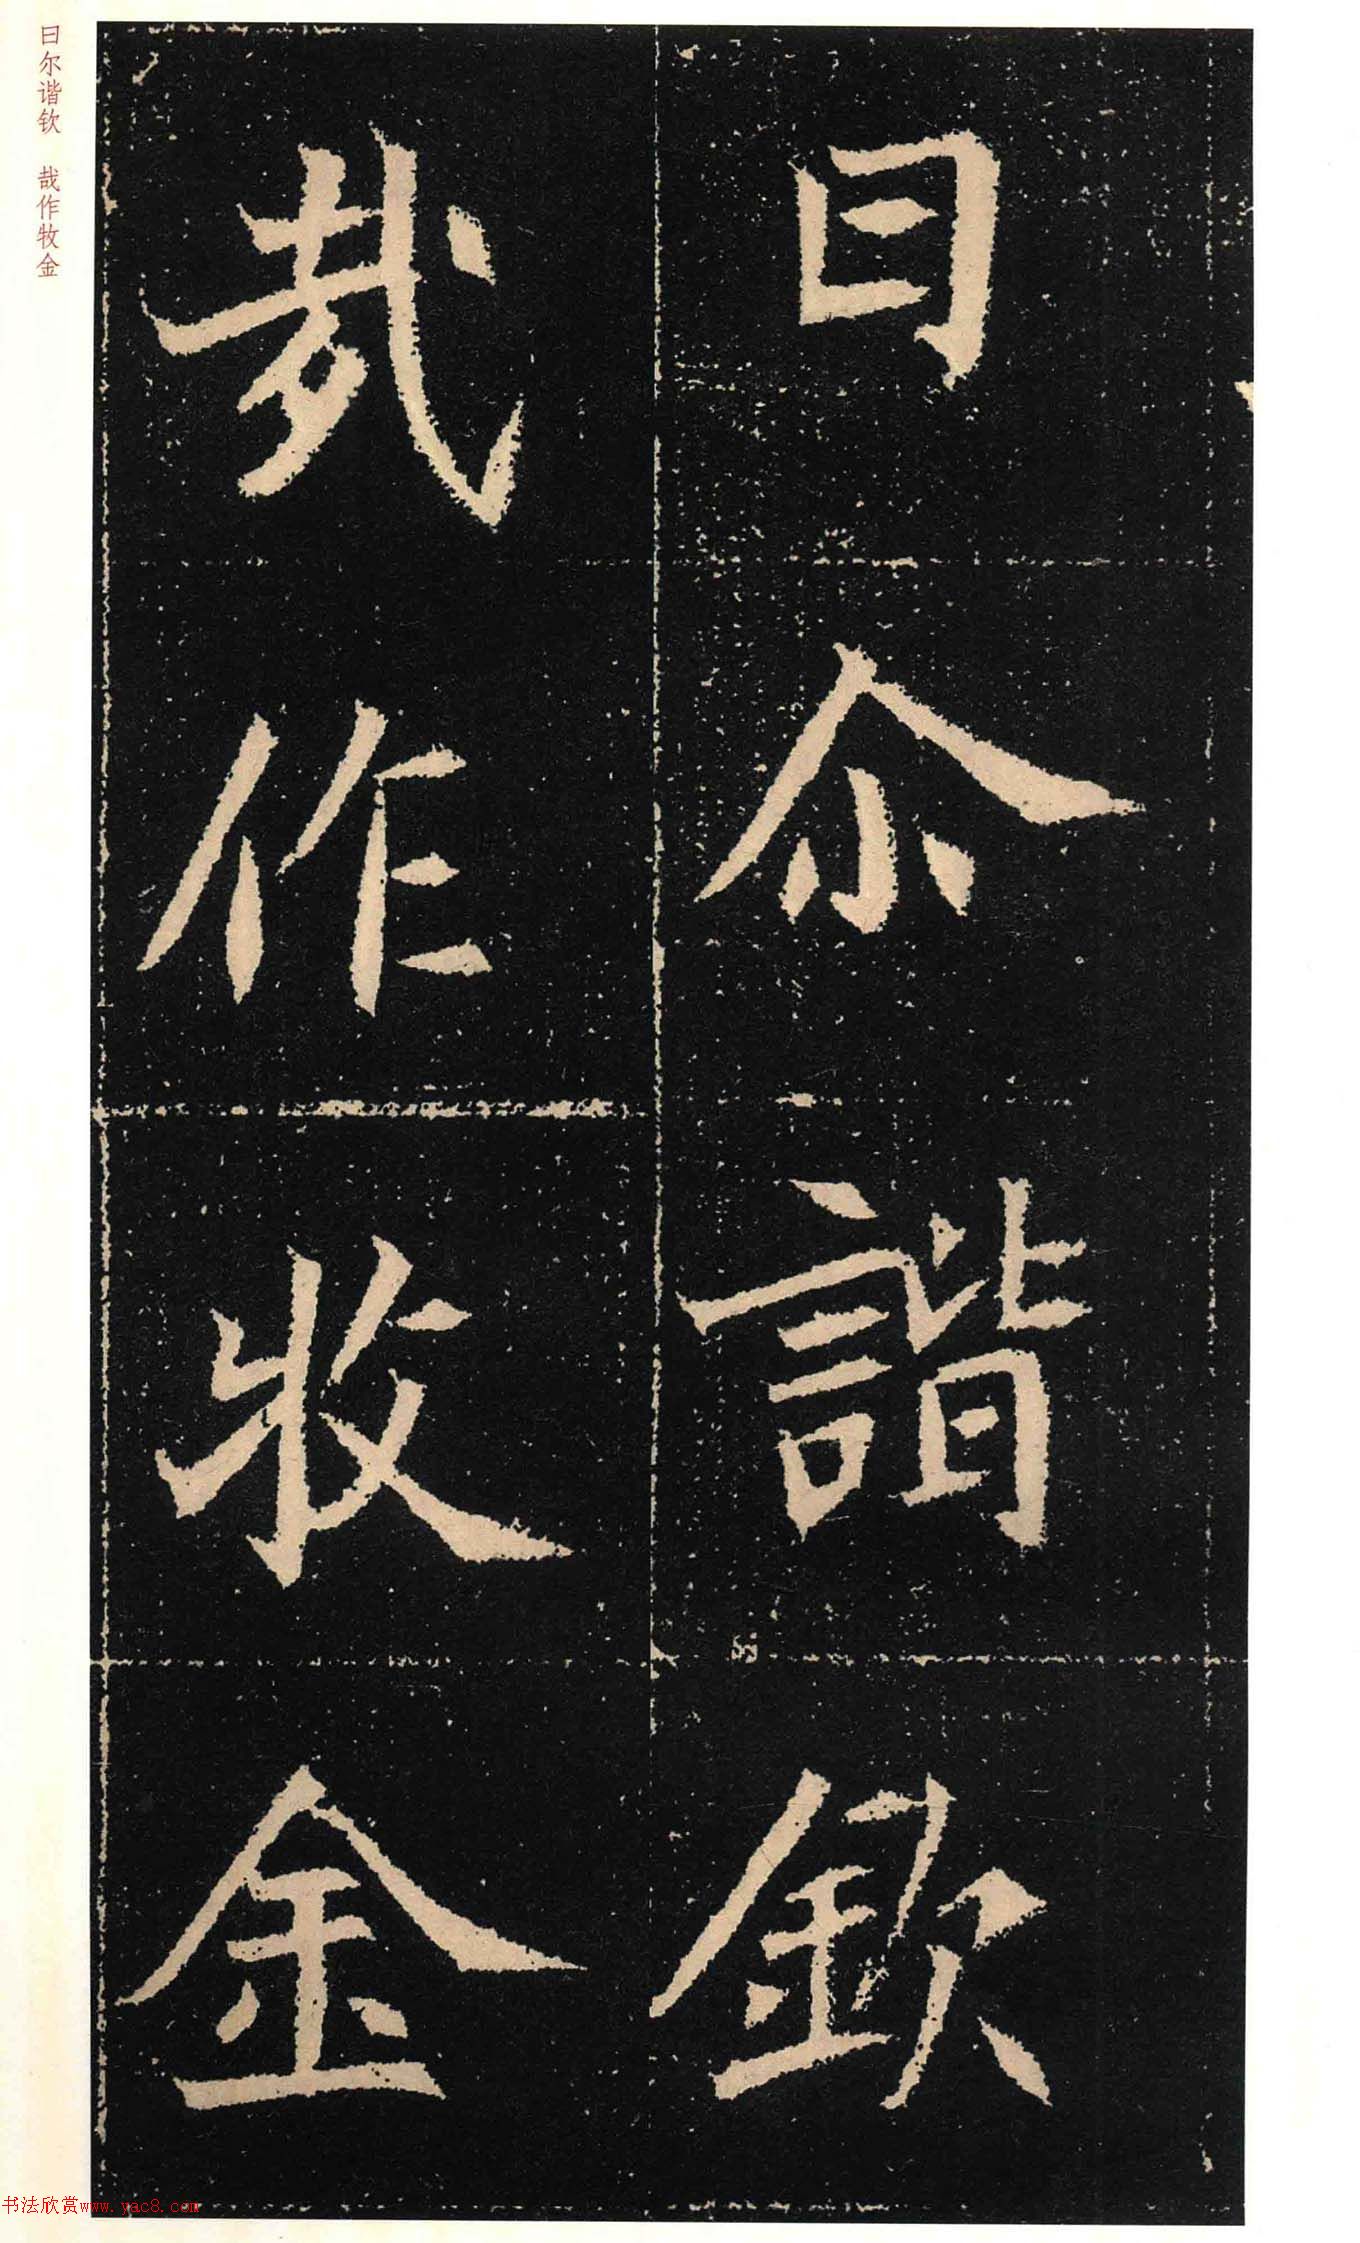 曰尒諧欽
哉作牧金
曰尔谐钦 哉作牧金
书法欣赏www.yac8.com